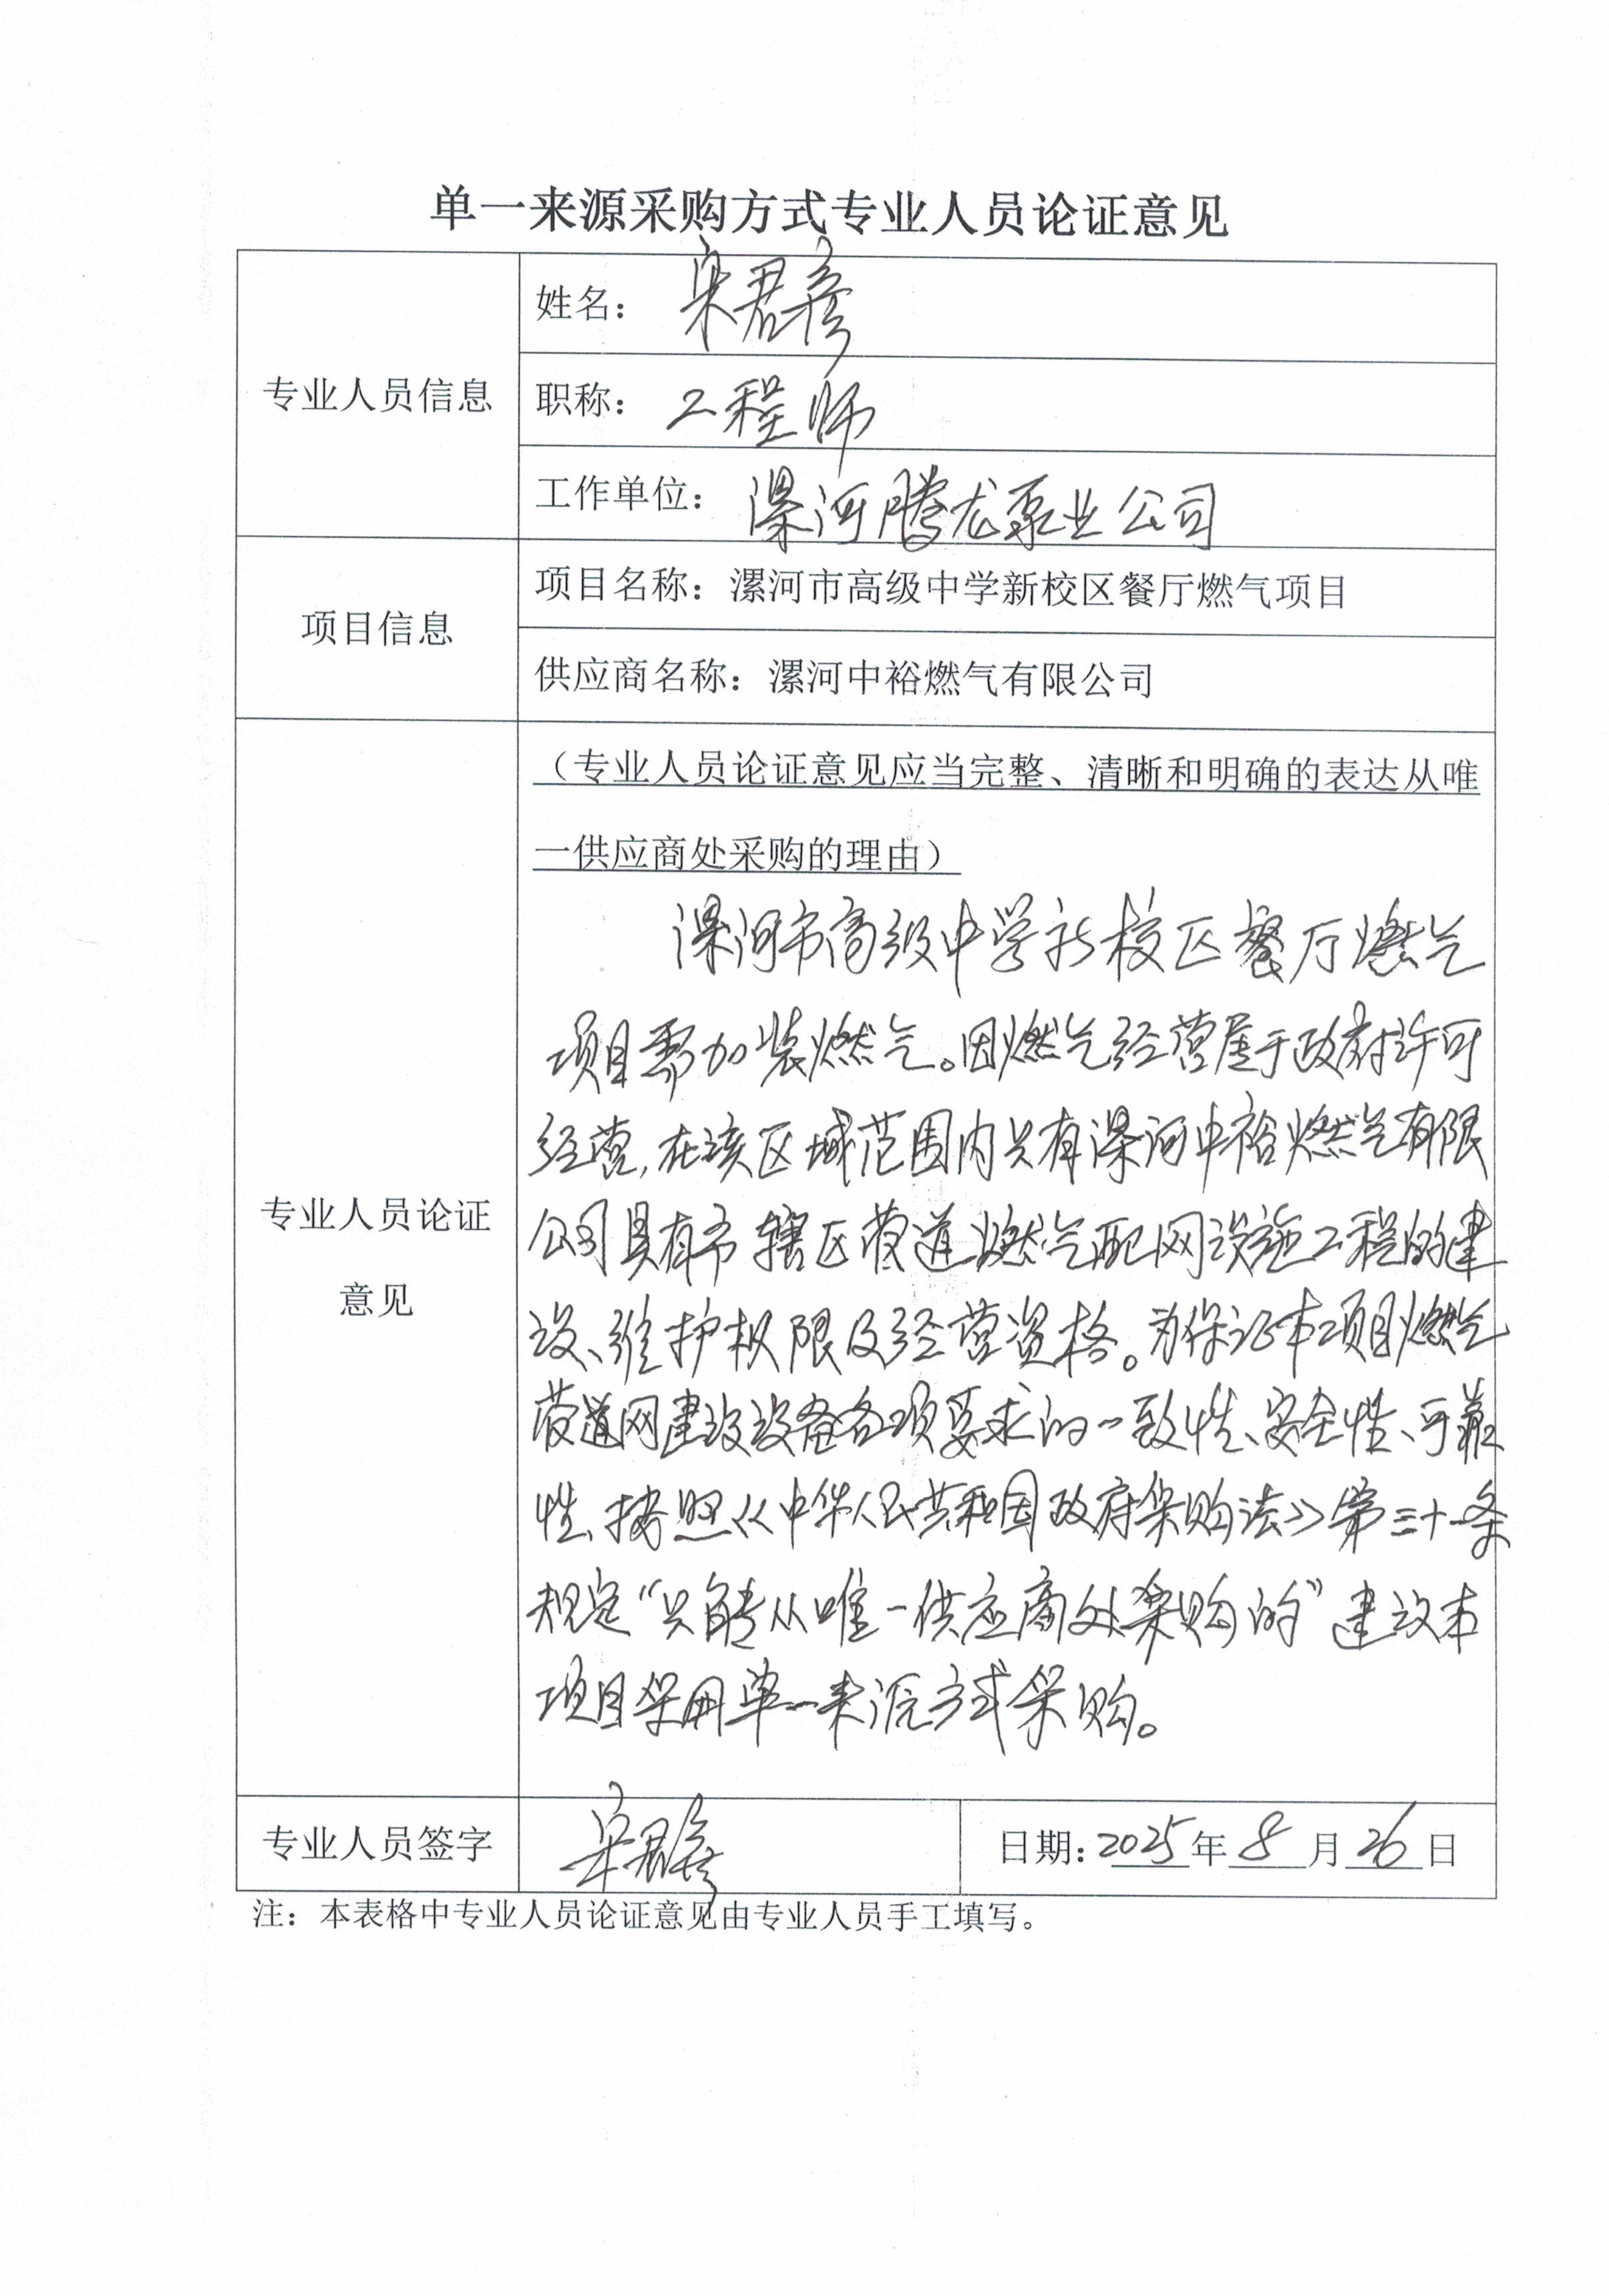 单一来源采购方式专业人员论证意见
专业人员信息
姓名：宋君彦
职称：工程师
工作单位：漯河腾龙泵业公司
项目信息
项目名称：漯河市高级中学新校区餐厅燃气项目
供应商名称：漯河中裕燃气有限公司
专业人员论证
意见
（专业人员论证意见应当完整、清晰和明确的表达从唯
一供应商处采购的理由）
漯河市高级中学新校区餐厅燃气
项目需加装燃气。因燃气经营属于政府许可
经营，在该区域范围内只有漯河中裕燃气有限
公司具有市辖区管道燃气配网设施工程的建
设、维护权限及经营资格。为保证本项目燃气
管道网建设设备各项要求的一致性、安全性、可靠
性，按照《中华人民共和国政府采购法》第三十一条
规定“只能从唯一供应商处采购的”建议本
项目采用单一来源方式采购。
专业人员签字
宋君彦
日期：2025年8月26日
注：本表格中专业人员论证意见由专业人员手工填写。